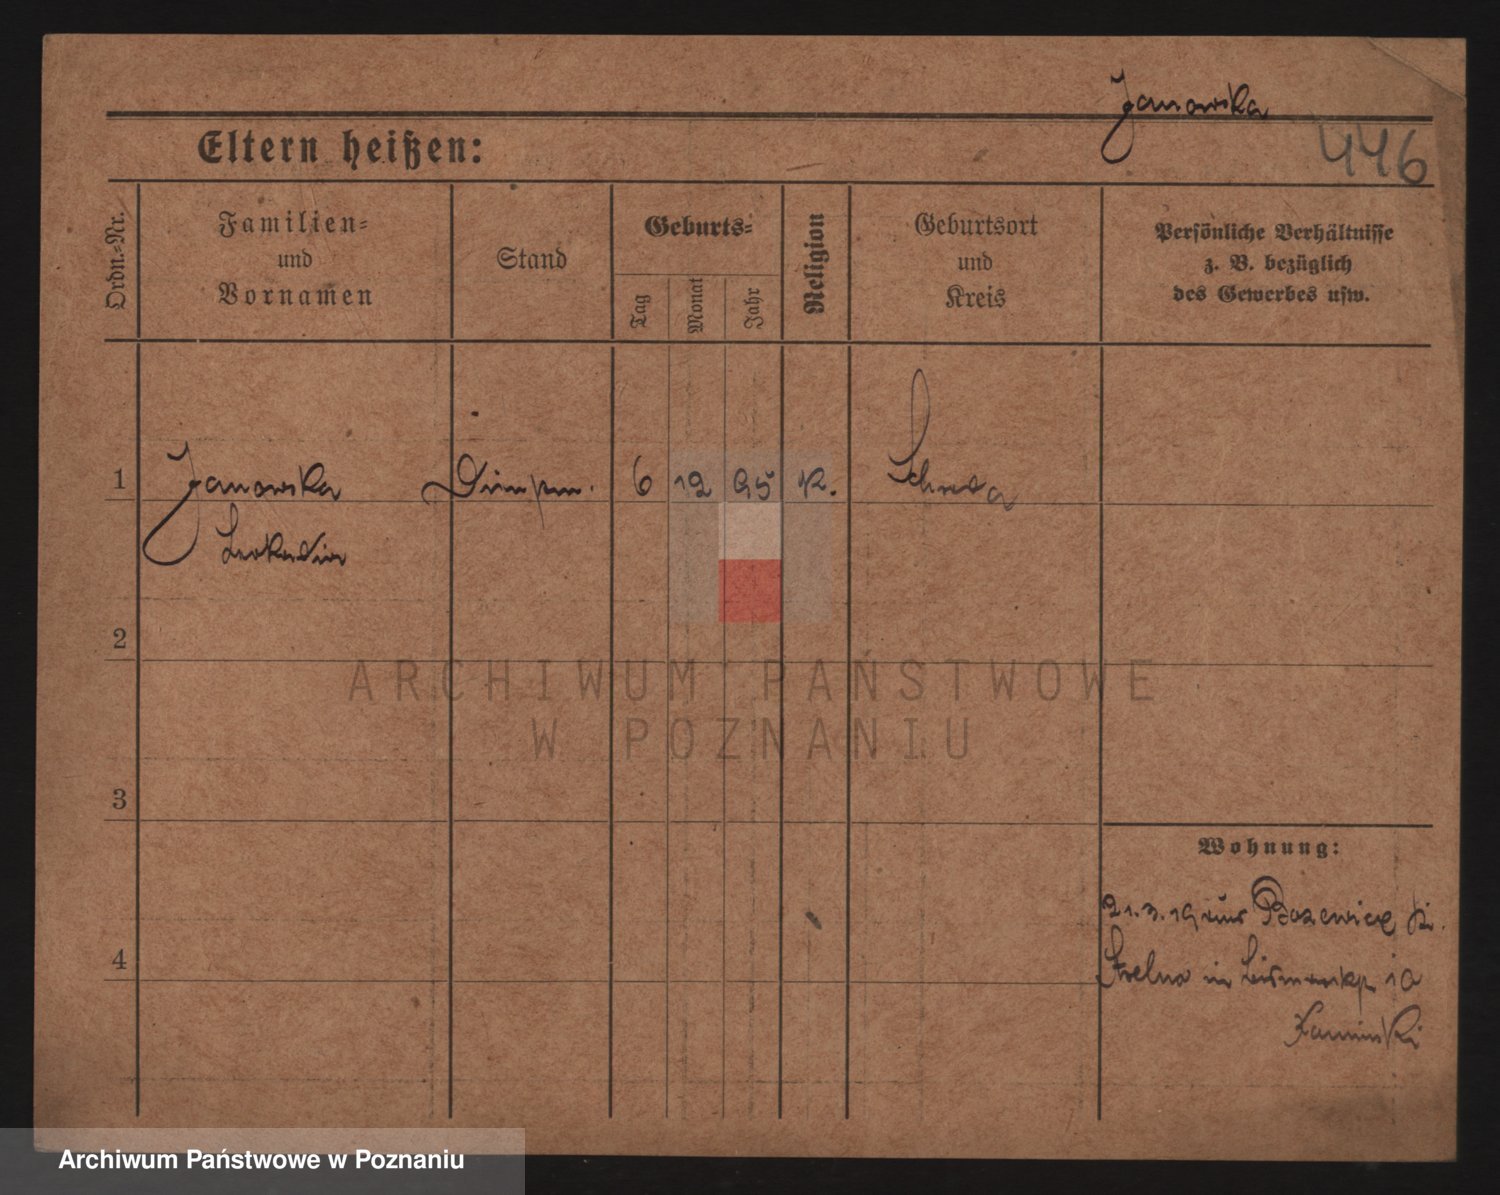 Janowska
446
Eltern heißen:
Ordn.-Nr.
Familien-
und
Vornamen
Stand
Geburts-
Tag
Monat
Jahr
Religion
Geburtsort
und
Kreis
Persönliche Verhältnisse
z. B. bezüglich
des Gewerbes usw.
1
Janowska
Leokadia
6 12 95 K.
2
ARCHIWUM PAŃSTWOWE
W POZNANIU
3
Wohnung:
21.3.19 aus
4
Strelno in 10
Kaminski
Archiwum Państwowe w Poznaniu